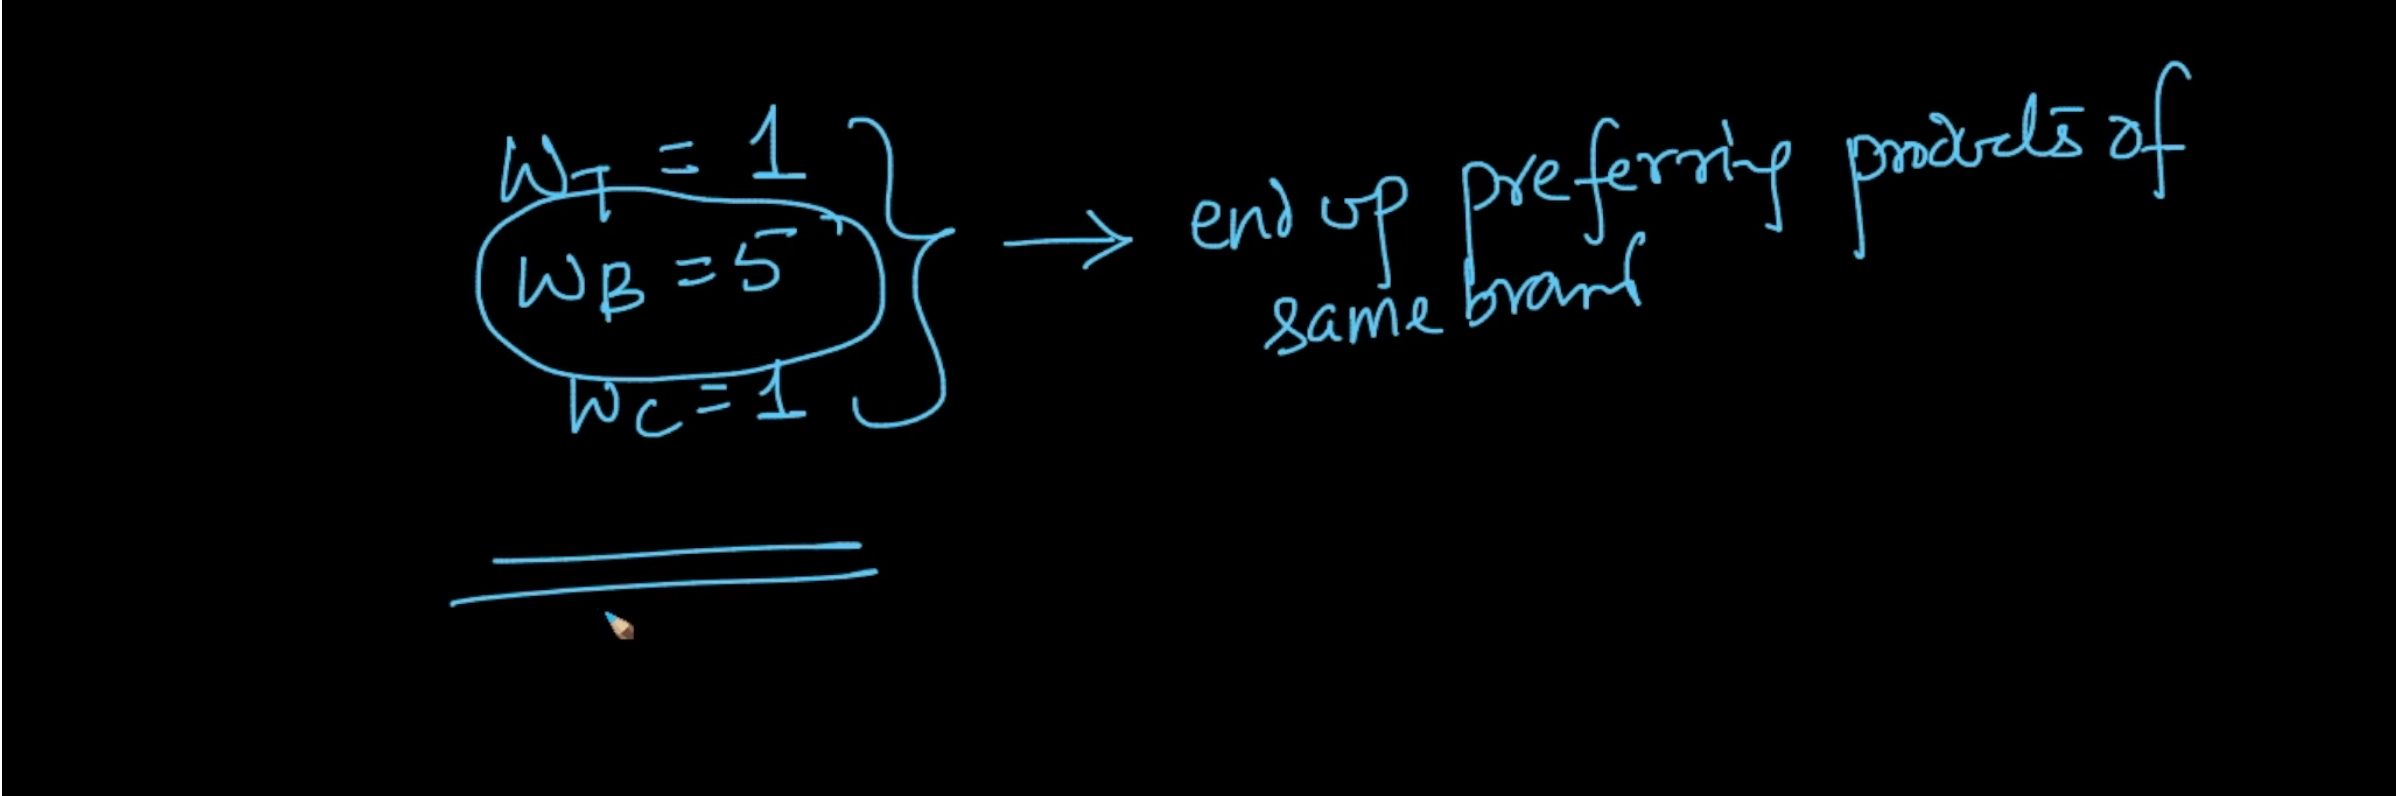 W_T = 1
W_B = 5
W_C = 1
end up preferring products of
same brand